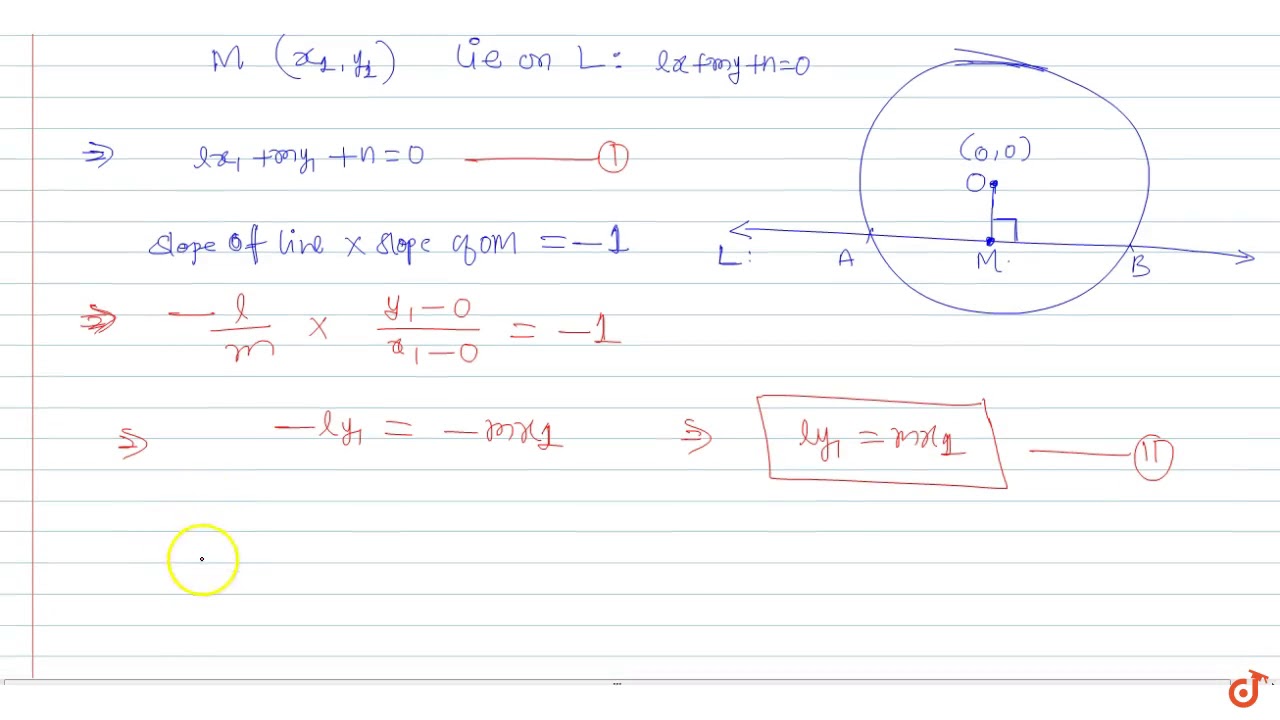 M (x₁, y₁) lie on L: lx+my+n=0
⇒ lx₁ +my₁ +n=0 ——— Ⓘ
(0,0)
O
slope of line × slope of OM = -1
L:
A
M.
B
⇒ - l/m × (y₁-0)/(x₁-0) = -1
⇒ -ly₁ = -mx₁ ⇒ ly₁ = mx₁ ——— (II)